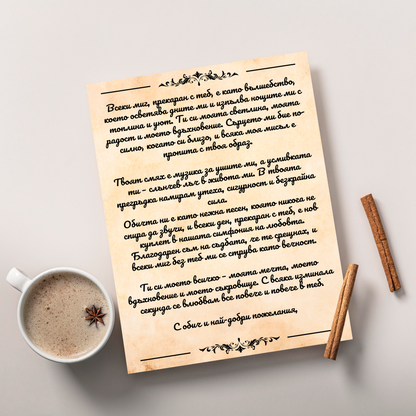 Всеки миг, прекаран с теб, е като вълшебство,
което осветява дните ми и изпълва нощите ми с
топлина и уют. Ти си моята светлина, моята
радост и моето вдъхновение. Сърцето ми бие по-
силно, когато си близо, и всяка моя мисъл е
пропита с твоя образ.
Твоят смях е музика за ушите ми, а усмивката
ти – слънчев лъч в живота ми. В твоята
прегръдка намирам утеха, сигурност и безкрайна
сила.
Обичта ни е като нежна песен, която никога не
спира да звучи, и всеки ден, прекаран с теб, е нов
куплет в нашата симфония на любовта.
Благодарен съм на съдбата, че те срещнах, и
всеки миг без теб ми се струва като вечност.
Ти си моето всичко – моята мечта, моето
вдъхновение и моето съкровище. С всяка изминала
секунда се влюбвам все повече и повече в теб.
С обич и най-добри пожелания,